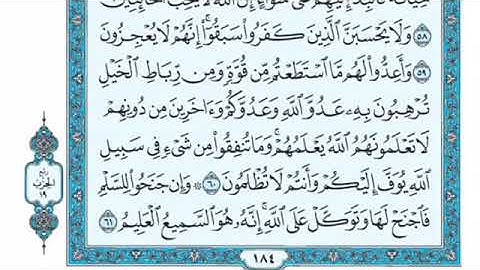 خِيَانَةً فَانۢبِذْ إِلَيْهِمْ عَلَىٰ سَوَآءٍ إِنَّ ٱللَّهَ لَا يُحِبُّ ٱلْخَآئِنِينَ
٥٨ وَلَا يَحْسَبَنَّ ٱلَّذِينَ كَفَرُوا۟ سَبَقُوٓا۟ إِنَّهُمْ لَا يُعْجِزُونَ
٥٩ وَأَعِدُّوا۟ لَهُم مَّا ٱسْتَطَعْتُم مِّن قُوَّةٍ وَمِن رِّبَاطِ ٱلْخَيْلِ
تُرْهِبُونَ بِهِۦ عَدُوَّ ٱللَّهِ وَعَدُوَّكُمْ وَءَاخَرِينَ مِن دُونِهِمْ
لَا تَعْلَمُونَهُمُ ٱللَّهُ يَعْلَمُهُمْ ۚ وَمَا تُنفِقُوا۟ مِن شَىْءٍ فِى سَبِيلِ
ٱللَّهِ يُوَفَّ إِلَيْكُمْ وَأَنتُمْ لَا تُظْلَمُونَ ٦٠ ۞ وَإِن جَنَحُوا۟ لِلسَّلْمِ
فَٱجْنَحْ لَهَا وَتَوَكَّلْ عَلَى ٱللَّهِ ۚ إِنَّهُۥ هُوَ ٱلسَّمِيعُ ٱلْعَلِيمُ ٦١
ربع
الحزب
١٩
١٨٤